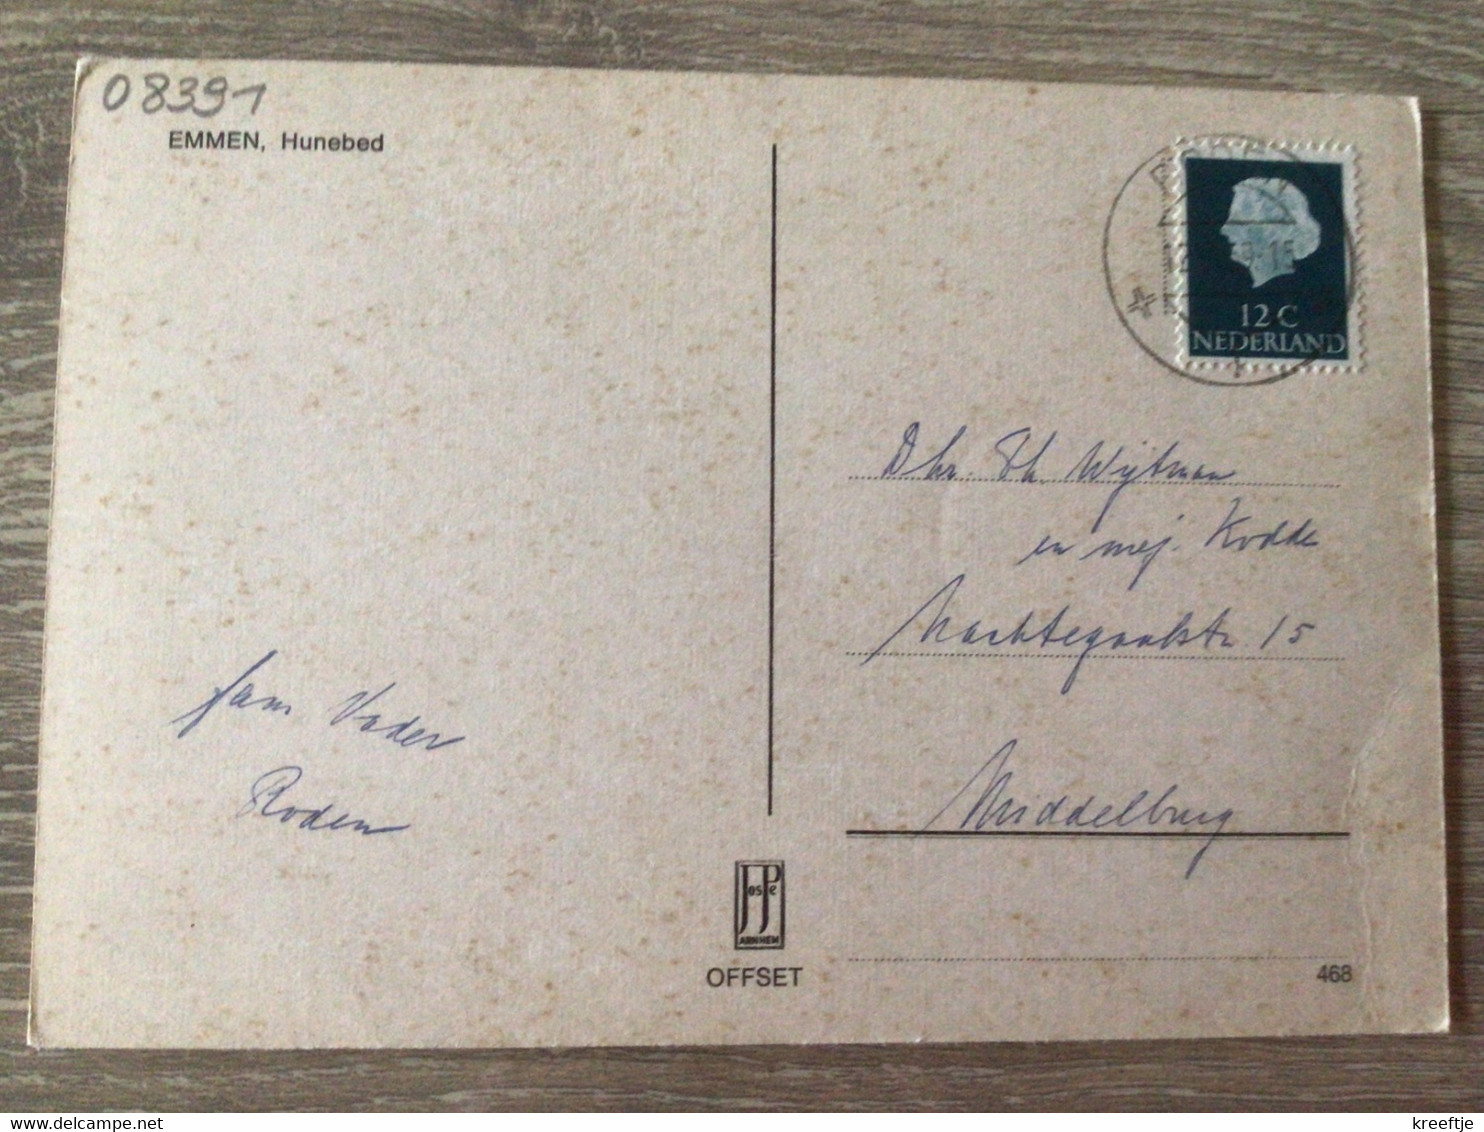 08391
EMMEN, Hunebed
12 C
NEDERLAND
Dhr. Th. Wijtman
en mej. Kodde
Nachtegaalstr. 15
Middelburg
fam Vader
Roden
JosPe
ARNHEM
OFFSET
468
delcampe.net
kreeftje